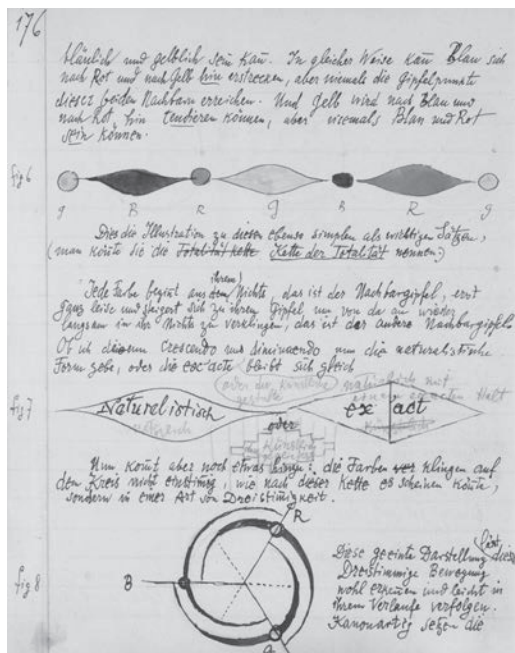 176
bläulich und gelblich sein kann. In gleicher Weise kann Blau sich
nach Rot und nach Gelb hin erstrecken, aber niemals die Gipfelpunkte
dieser beiden Nachbarn erreichen. Und Gelb wird nach Blau und
nach Rot hin tendieren können, aber niemals Blau und Rot
sein können.
fig 6
g B R g B R g
Dies die Illustration zu diesen ebenso simplen als wichtigen Sätzen,
(man könnte sie die Totalität Kette Kette der Totalität nennen.)
Jede Farbe beginnt aus dem ihrem Nichts, das ist der Nachbargipfel, erst
ganz leise und steigert sich zu ihrem Gipfel, um von da an wieder
langsam in ihr Nichts zu verklingen, das ist der andere Nachbargipfel.
Ob ich diesem Crescendo und diminuendo nun die naturalistische
Form gebe, oder die exacte bleibt sich gleich
oder die künstliche
fig 7
Naturalistisch
oder
ex act
Nun kommt aber noch etwas hinzu: die Farben ver klingen auf
dem Kreis nicht einstimmig, wie nach dieser Kette es scheinen könnte,
sondern in einer Art von Dreistimmigkeit.
fig 8
R
B
g
Diese geeinte Darstellung lässt diese
Dreistimmige Bewegung
wohl erkennen und leicht in
ihrem Verlaufe verfolgen.
Kanonartig setzen die